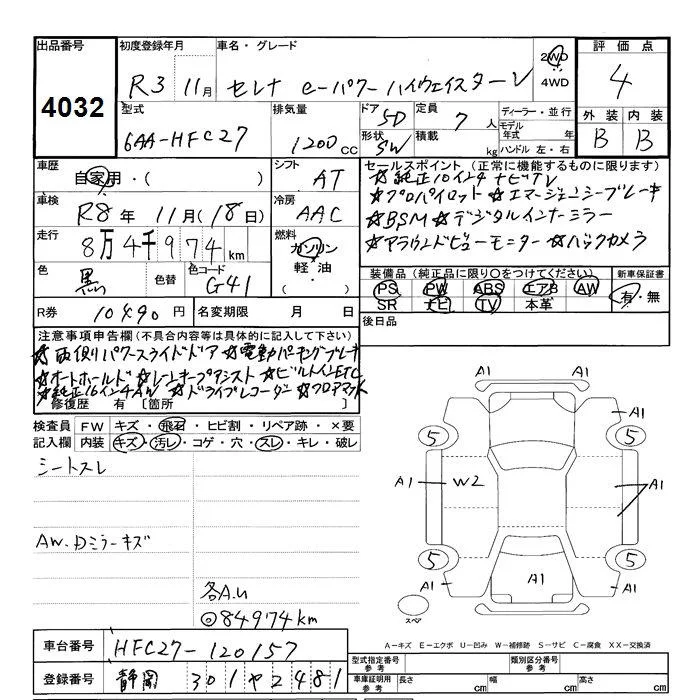 出品番号
4032
初度登録年月
R3 11月
車名・グレード
セレナ e-パワー ハイウェイスターV
2WD
4WD
評価点
4
外装 内装
B B
型式
6AA-HFC27
排気量
1200cc
ドア 5D
形状 SW
定員 7人
積載 kg
ディーラー・並行
モデル年式 年
ハンドル 左・右
車歴
自家用・( )
シフト
AT
車検
R8年11月(18日)
冷房
AAC
走行
8万4千974km
燃料
ガソリン
軽油・
色
黒
色替
色コード
G41
R券
10490
名変期限 月 日
セールスポイント(正常に機能するものに限ります)
☆純正10インチナビTV
☆プロパイロット☆エマージェンシーブレーキ
☆BSM☆デジタルインナーミラー
☆アラウンドビューモニター☆バックカメラ
装備品(純正品に限り○をつけてください)
PS PW ABS エアB AW
SR ナビ TV 本革
新車保証書
有・無
後日品
注意事項申告欄(不具合内容等は具体的に記入して下さい)
☆両側パワースライドドア☆電動パーキングブレーキ
☆オートホールド☆レーンキープアシスト☆ビルトインETC
☆純正16インチAW☆ドライブレコーダー☆フロアマット
修復歴 有 [箇所
検査員記入欄
FW キズ・飛石・ヒビ割・リペア跡・×要
内装 キズ・汚レ・コゲ・穴・スレ・キレ・破レ
シートスレ
AW.Dミラーキズ
各A.U
◎84974km
A1
A1 A1
5 5
A1 W2 A1
5 5
A1 A1 A1
スペア
A-キズ E-エクボ U-凹み W-補修跡 S-サビ C-腐食 XX-交換済
車台番号
HFC27-120157
登録番号
静岡 301 や 2481
型式指定番号 参考
類別区分番号 参考
車庫証明用 参考
長さ cm
幅 cm
高さ cm